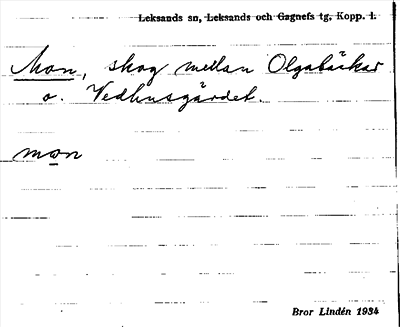 Leksands sn, Leksands och Gagnefs tg, Kopp. l.
Mon, skog mellan Olgabäckar
o. Vedhusgärdet.
mon
Bror Lindén 1934